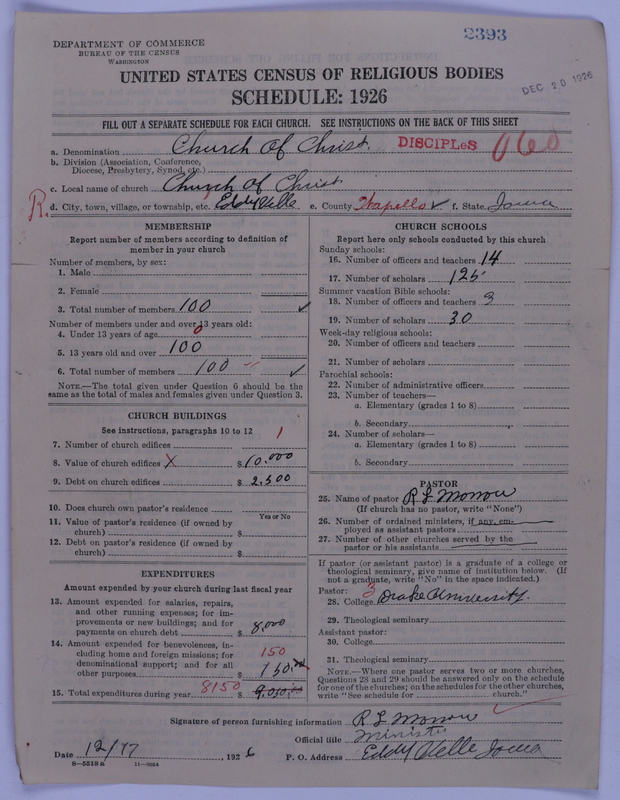 2393
DEPARTMENT OF COMMERCE
BUREAU OF THE CENSUS
WASHINGTON
DEC 20 1926
UNITED STATES CENSUS OF RELIGIOUS BODIES
SCHEDULE: 1926
FILL OUT A SEPARATE SCHEDULE FOR EACH CHURCH. SEE INSTRUCTIONS ON THE BACK OF THIS SHEET
a. Denomination Church of Christ. DISCIPLES 060
b. Division (Association, Conference,
Diocese, Presbytery, Synod, etc.)
c. Local name of church Church of Christ
R. d. City, town, village, or township, etc. Eddyville e. County Wapello ✓ f. State Iowa
MEMBERSHIP
Report number of members according to definition of
member in your church
Number of members, by sex:
1. Male
2. Female
3. Total number of members 100 ✓
Number of members under and over 13 years old:
4. Under 13 years of age 0
5. 13 years old and over 100
6. Total number of members 100 ✓
NOTE.—The total given under Question 6 should be the
same as the total of males and females given under Question 3.
CHURCH BUILDINGS
See instructions, paragraphs 10 to 12
7. Number of church edifices 1
8. Value of church edifices X $ 10.000
9. Debt on church edifices $ 2.500
10. Does church own pastor's residence
Yes or No
11. Value of pastor's residence (if owned by
church) $
12. Debt on pastor's residence (if owned by
church) $
EXPENDITURES
Amount expended by your church during last fiscal year
13. Amount expended for salaries, repairs,
and other running expenses; for im-
provements or new buildings; and for
payments on church debt $ 8,000
14. Amount expended for benevolences, in-
cluding home and foreign missions; for
denominational support; and for all 150
other purposes $ 150.00
15. Total expenditures during year 8150 $
CHURCH SCHOOLS
Report here only schools conducted by this church
Sunday schools:
16. Number of officers and teachers 14
17. Number of scholars 125
Summer vacation Bible schools:
18. Number of officers and teachers 3
19. Number of scholars 30
Week-day religious schools:
20. Number of officers and teachers
21. Number of scholars
Parochial schools:
22. Number of administrative officers
23. Number of teachers—
a. Elementary (grades 1 to 8)
b. Secondary
24. Number of scholars—
a. Elementary (grades 1 to 8)
b. Secondary
PASTOR
25. Name of pastor R L Morrow
(If church has no pastor, write "None")
26. Number of ordained ministers, if any, em-
ployed as assistant pastors
27. Number of other churches served by the
pastor or his assistants
If pastor (or assistant pastor) is a graduate of a college or
theological seminary, give name of institution below. (If
not a graduate, write "No" in the space indicated.)
Pastor: 3
28. College Drake University.
29. Theological seminary
Assistant pastor:
30. College
31. Theological seminary
NOTE.—Where one pastor serves two or more churches,
Questions 28 and 29 should be answered only on the schedule
for one of the churches; on the schedules for the other churches,
write "See schedule for church."
Signature of person furnishing information R L Morrow
Official title Minister
Date 12/17, 1926 P. O. Address Eddyville Iowa
8-5518a